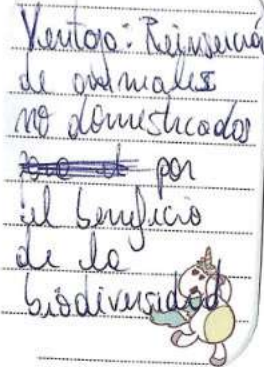 Ventaja: Reinserción
de animales
no domesticados
por
el beneficio
de la
biodiversidad